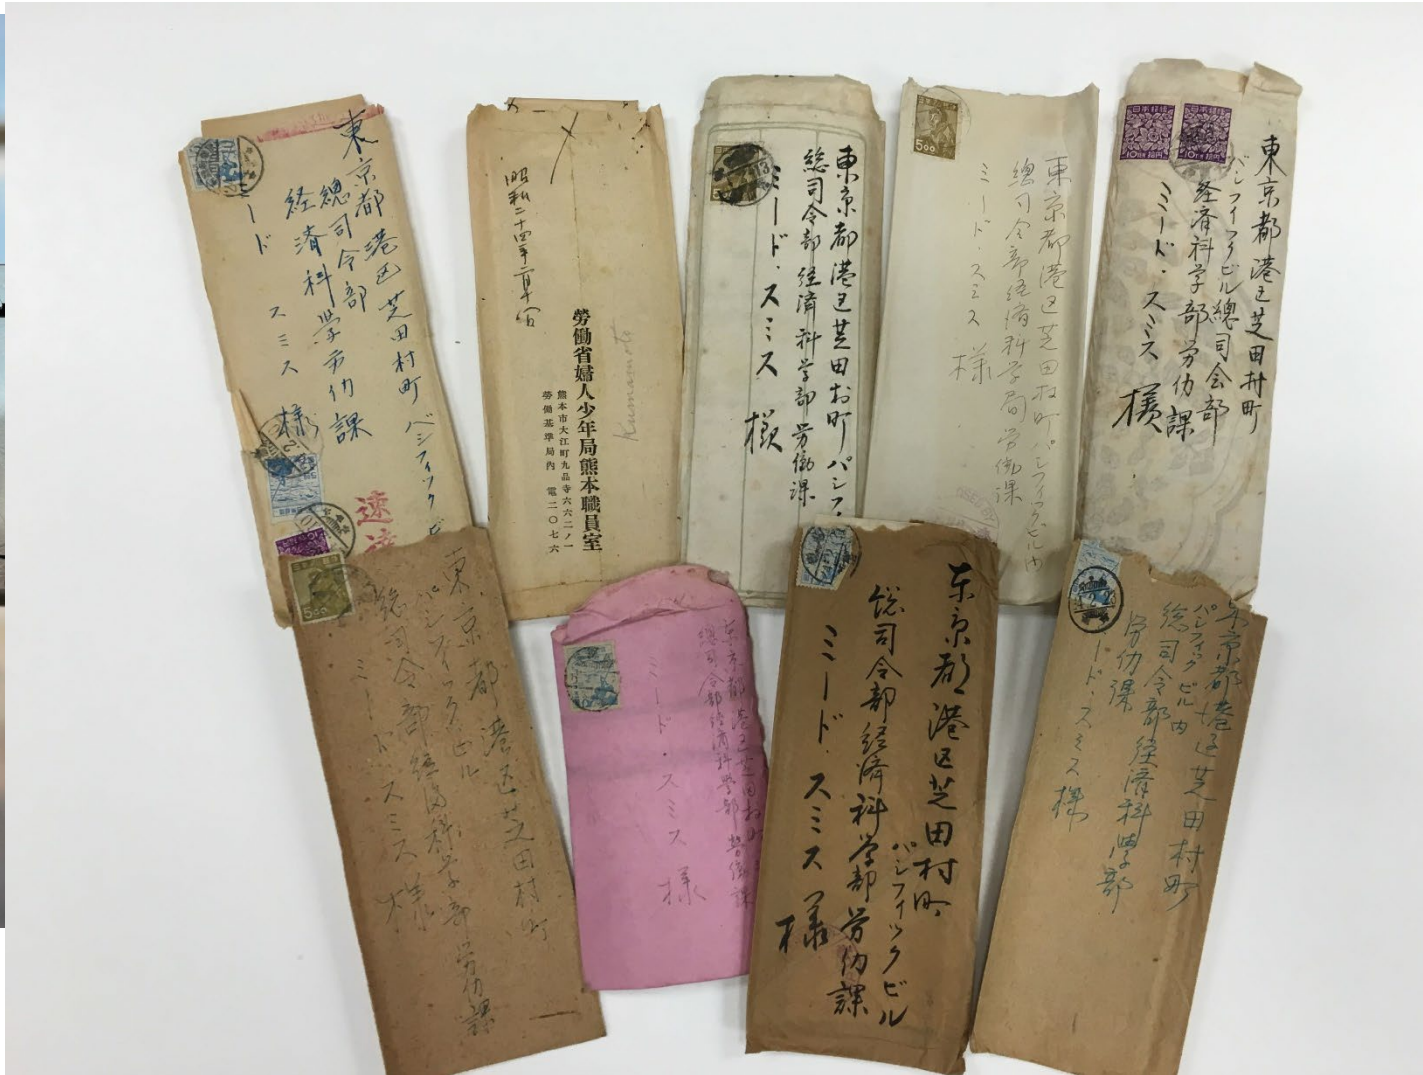 東京都港区芝田村町 パシフィックビ
總司令部
経済科学部労仂課
ミード スミス 様
速達
昭和二十四年
勞働省婦人少年局熊本職員室
熊本市大江町九品寺六六二ノ一
勞働基準局内 電二〇七六
Kumamoto
東京都港区芝田村町パシフィ
総司令部経済科学部労働課
ミード・スミス 様
5.00
東京都港区芝田村町パシフィックビル内
總司令部経済科学局労働課
ミード・スミス 様
日本郵便
10 拾円
日本郵便
10 拾円
東京都港区芝田村町
パシフィックビル總司会部
経済科学部労仂課
ミード・スミス 様
5.00
東京都港区芝田村町
パシフィックビル
総司令部経済科学部労仂課
ミード・スミス様
東京都港区芝田村町
總司令部経済科學部 労働課
ミード・スミス 様
东京都港区芝田村町
パシフィックビル
総司令部経済科学部労仂課
ミード スミス様
東京都港区芝田村町
パシフィックビル内
総司令部経済科学部
労仂課
ミード・スミス様